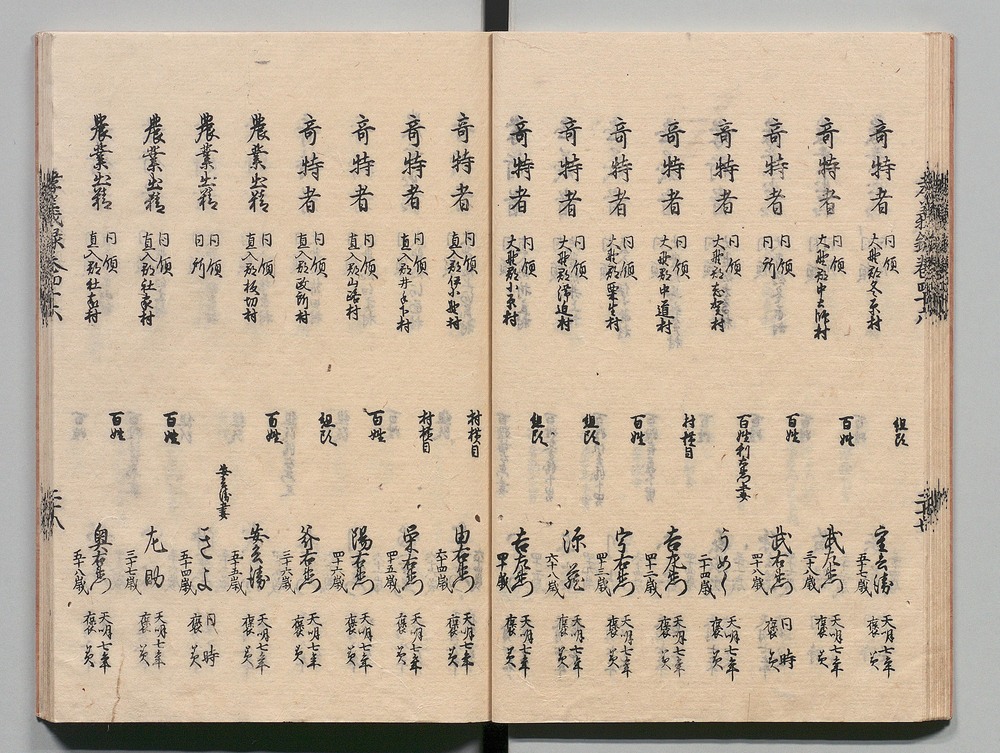 孝義録巻四十六
奇特者 同領大野郡冬原村 組頭 五十七歳 天明七年褒美
奇特者 同領大野郡中土師村 百姓 武左衛門 三十八歳 天明七年褒美
奇特者 同領同所 百姓 武右衛門 四十八歳 同時褒美
奇特者 同領大野郡志賀村 百姓利右衛門妻 うめ 二十四歳 天明七年褒美
奇特者 同領大野郡中道村 村横目 吉左衛門 四十二歳 天明七年褒美
奇特者 同領大野郡栗生村 百姓 宇右衛門 四十三歳 天明七年褒美
奇特者 同領大野郡滞迫村 組頭 源蔵 六十八歳 天明七年褒美
奇特者 同領大野郡小原村 組頭 吉左衛門 四十八歳 天明七年褒美
二十七
奇特者 同領直入郡伊小野村 村横目 由右衛門 六十四歳 天明七年褒美
奇特者 同領直入郡井手下村 村横目 栄右衛門 四十五歳 天明七年褒美
奇特者 同領直入郡山路村 百姓 陽右衛門 四十六歳 天明七年褒美
奇特者 同領直入郡政所村 組頭 右衛門 三十六歳 天明七年褒美
農業出精 同領直入郡板切村 百姓 安兵衛 五十五歳 天明七年褒美
農業出精 同領同所 安兵衛妻 きよ 五十四歳 同時褒美
農業出精 同領直入郡社家村 百姓 左助 三十七歳 天明七年褒美
農業出精 同領直入郡社家村 百姓 奥右衛門 五十八歳 天明七年褒美
孝義録巻四十六
二十八